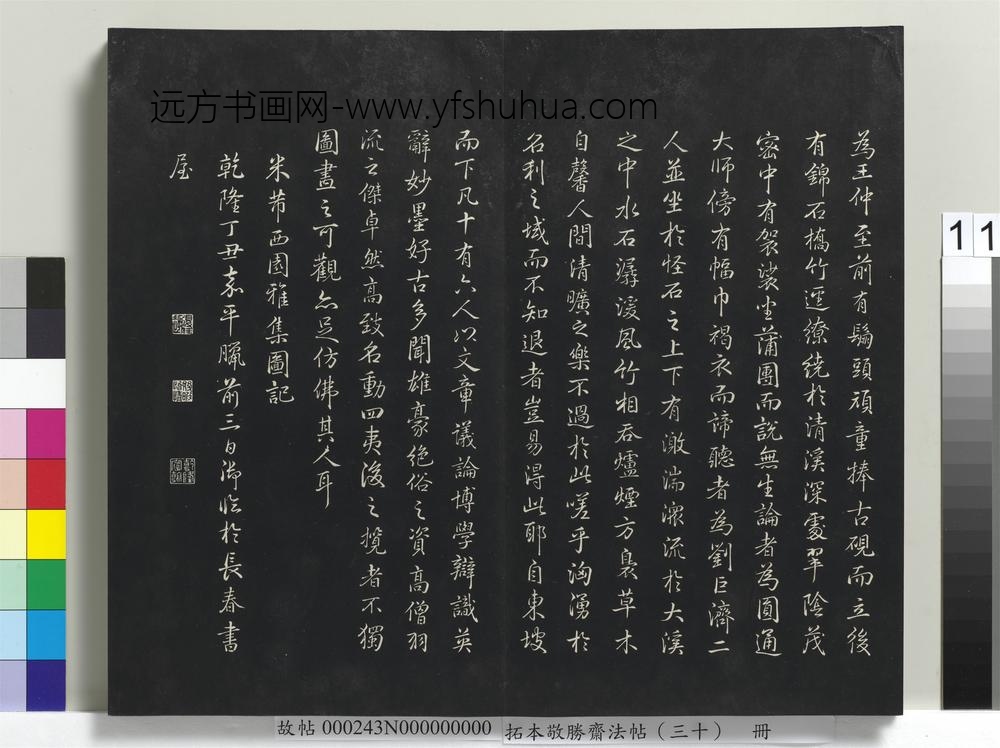 远方书画网-www.yfshuhua.com
為王仲至前有鬅頭頑童捧古硯而立後
有錦石橋竹逕繚繞於清溪深處翠陰茂
密中有袈裟坐蒲團而說無生論者為圓通
大師傍有幅巾褐衣而諦聽者為劉巨濟二
人並坐於怪石之上下有激湍潨流於大溪
之中水石潺湲風竹相吞爐煙方裊草木
自馨人間清曠之樂不過於此嗟乎洶湧於
名利之域而不知退者豈易得此耶自東坡
而下凡十有六人以文章議論博學辯識英
辭妙墨好古多聞雄豪絕俗之資高僧羽
流之傑卓然高致名動四夷後之攬者不獨
圖畫之可觀亦足仿佛其人耳
米芾西園雅集圖記
乾隆丁丑嘉平臘前三日御臨於長春書
屋
11
故帖 000243N000000000 拓本敬勝齋法帖（三十） 冊